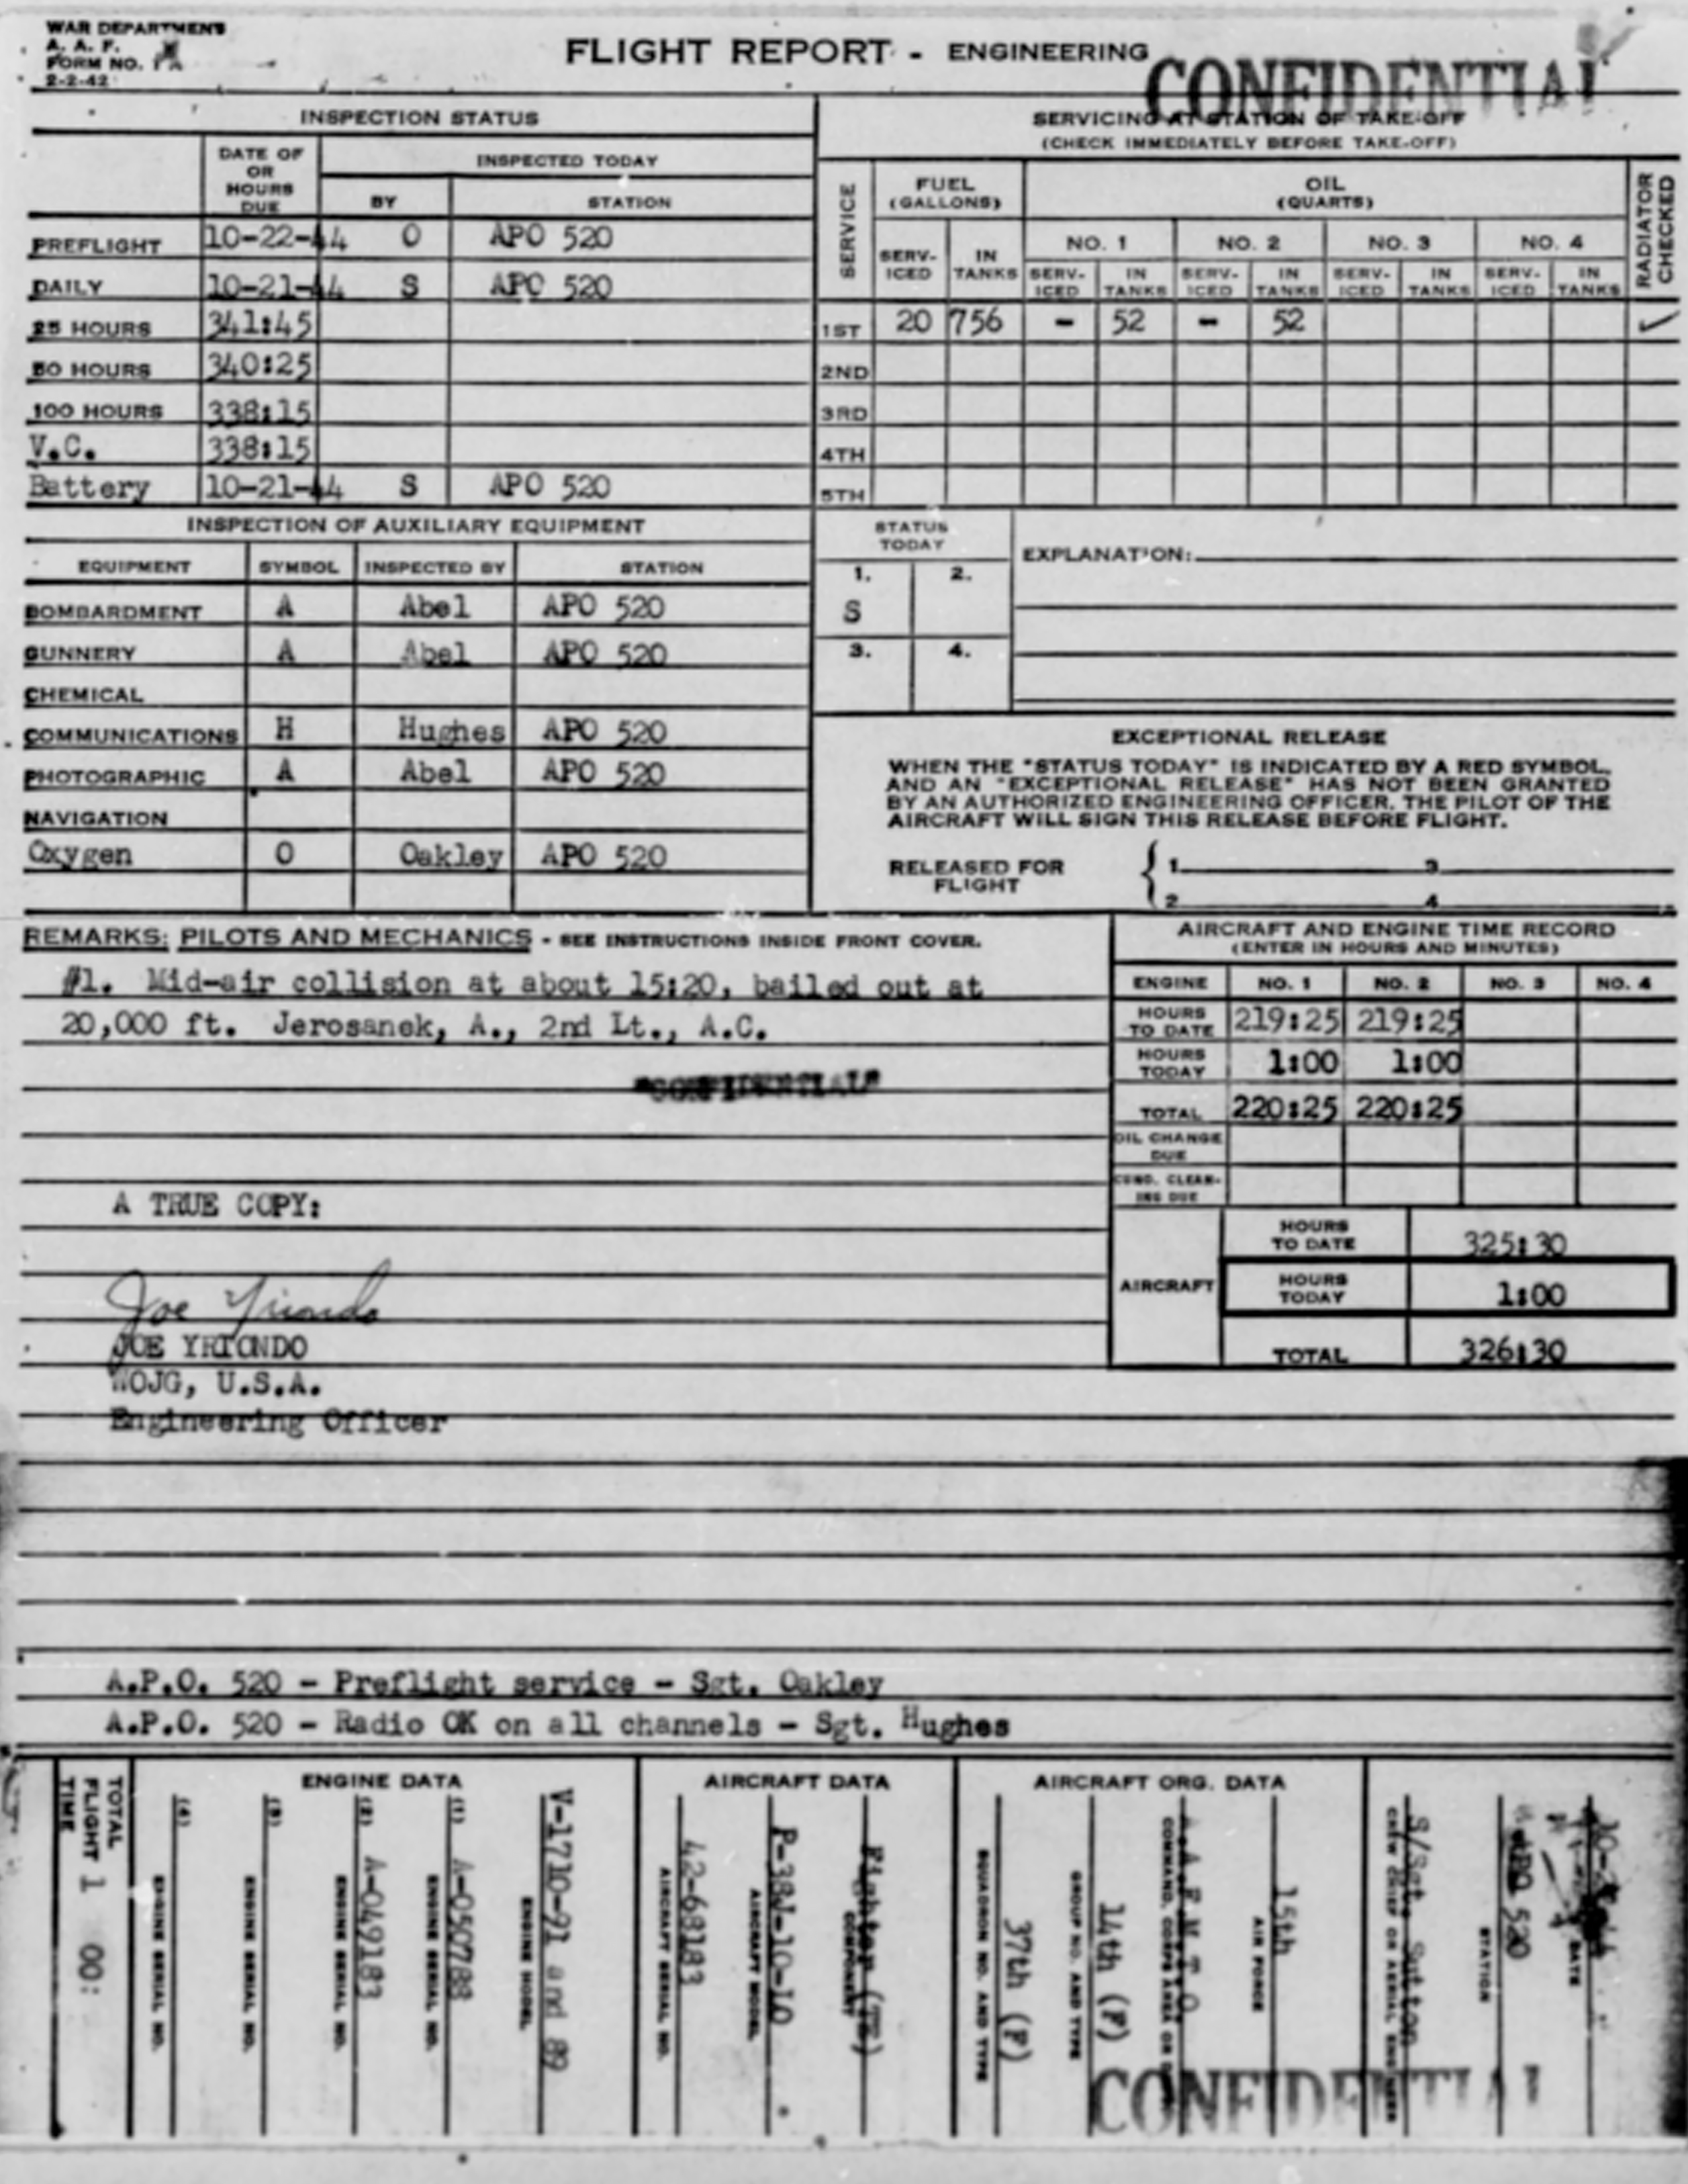 WAR DEPARTMENT
A. A. F.
FORM NO. 1
2-2-42
FLIGHT REPORT - ENGINEERING
CONFIDENTIAL
INSPECTION STATUS
DATE OF OR HOURS DUE
INSPECTED TODAY
BY STATION
PREFLIGHT 10-22-44 O APO 520
DAILY 10-21-44 S APO 520
25 HOURS 341:45
50 HOURS 340:25
100 HOURS 338:15
V.C. 338:15
Battery 10-21-44 S APO 520
SERVICING AT STATION OF TAKE-OFF
(CHECK IMMEDIATELY BEFORE TAKE-OFF)
SERVICE
FUEL (GALLONS)
OIL (QUARTS)
RADIATOR CHECKED
NO. 1 NO. 2 NO. 3 NO. 4
SERV-ICED IN TANKS SERV-ICED IN TANKS SERV-ICED IN TANKS SERV-ICED IN TANKS SERV-ICED IN TANKS
1ST 20 756 - 52 - 52 ✓
2ND
3RD
4TH
5TH
INSPECTION OF AUXILIARY EQUIPMENT
EQUIPMENT SYMBOL INSPECTED BY STATION
BOMBARDMENT A Abel APO 520
GUNNERY A Abel APO 520
CHEMICAL
COMMUNICATIONS H Hughes APO 520
PHOTOGRAPHIC A Abel APO 520
NAVIGATION
Oxygen O Oakley APO 520
STATUS TODAY
1. S 2.
3. 4.
EXPLANATION:
EXCEPTIONAL RELEASE
WHEN THE "STATUS TODAY" IS INDICATED BY A RED SYMBOL,
AND AN "EXCEPTIONAL RELEASE" HAS NOT BEEN GRANTED
BY AN AUTHORIZED ENGINEERING OFFICER, THE PILOT OF THE
AIRCRAFT WILL SIGN THIS RELEASE BEFORE FLIGHT.
RELEASED FOR FLIGHT
1 3
2 4
REMARKS: PILOTS AND MECHANICS - SEE INSTRUCTIONS INSIDE FRONT COVER.
#1. Mid-air collision at about 15:20, bailed out at
20,000 ft. Jerosanek, A., 2nd Lt., A.C.
"CONFIDENTIAL"
A TRUE COPY:
Joe Yriondo
JOE YRIONDO
WOJG, U.S.A.
Engineering Officer
AIRCRAFT AND ENGINE TIME RECORD
(ENTER IN HOURS AND MINUTES)
ENGINE NO. 1 NO. 2 NO. 3 NO. 4
HOURS TO DATE 219:25 219:25
HOURS TODAY 1:00 1:00
TOTAL 220:25 220:25
OIL CHANGE DUE
CUNO. CLEAN-ING DUE
AIRCRAFT
HOURS TO DATE 325:30
HOURS TODAY 1:00
TOTAL 326:30
A.P.O. 520 - Preflight service - Sgt. Oakley
A.P.O. 520 - Radio OK on all channels - Sgt. Hughes
TOTAL FLIGHT TIME 1 00:
ENGINE DATA
(4) ENGINE SERIAL NO.
(3) ENGINE SERIAL NO.
(2) A-049183 ENGINE SERIAL NO.
(1) A-050788 ENGINE SERIAL NO.
V-1710-91 and 89 ENGINE MODEL
AIRCRAFT DATA
42-68183 AIRCRAFT SERIAL NO.
P-38J-10-10 AIRCRAFT MODEL
Fighter (TE) COMPONENT
AIRCRAFT ORG. DATA
37th (F) SQUADRON NO. AND TYPE
14th (F) GROUP NO. AND TYPE
A.A.F.M.T.O. COMMAND, CORPS AREA OR
15th AIR FORCE
S/Sgt. Sutton CREW CHIEF OR AERIAL ENGINEER
APO 520 STATION
DATE
CONFIDENTIAL